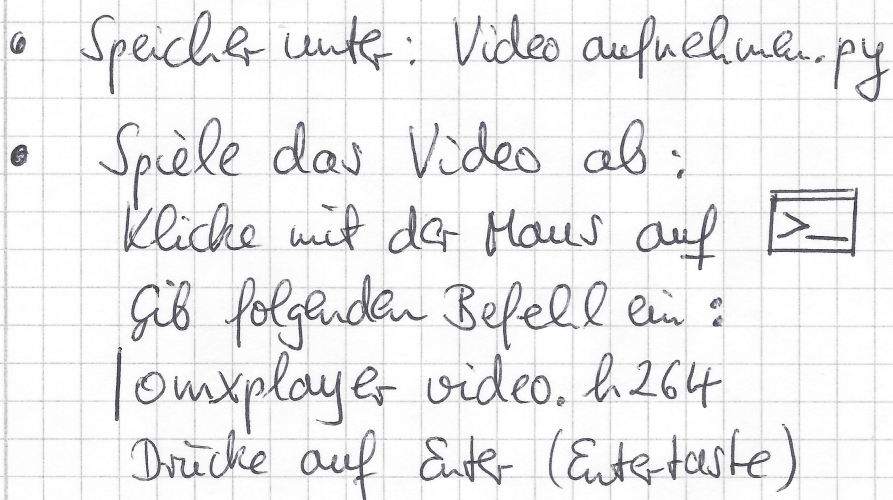 • Speicher unter: Video aufnehmen.py
• Spiele das Video ab:
Klicke mit der Maus auf >_
Gib folgenden Befehl ein:
|omxplayer video.h264
Drücke auf Enter (Entertaste)